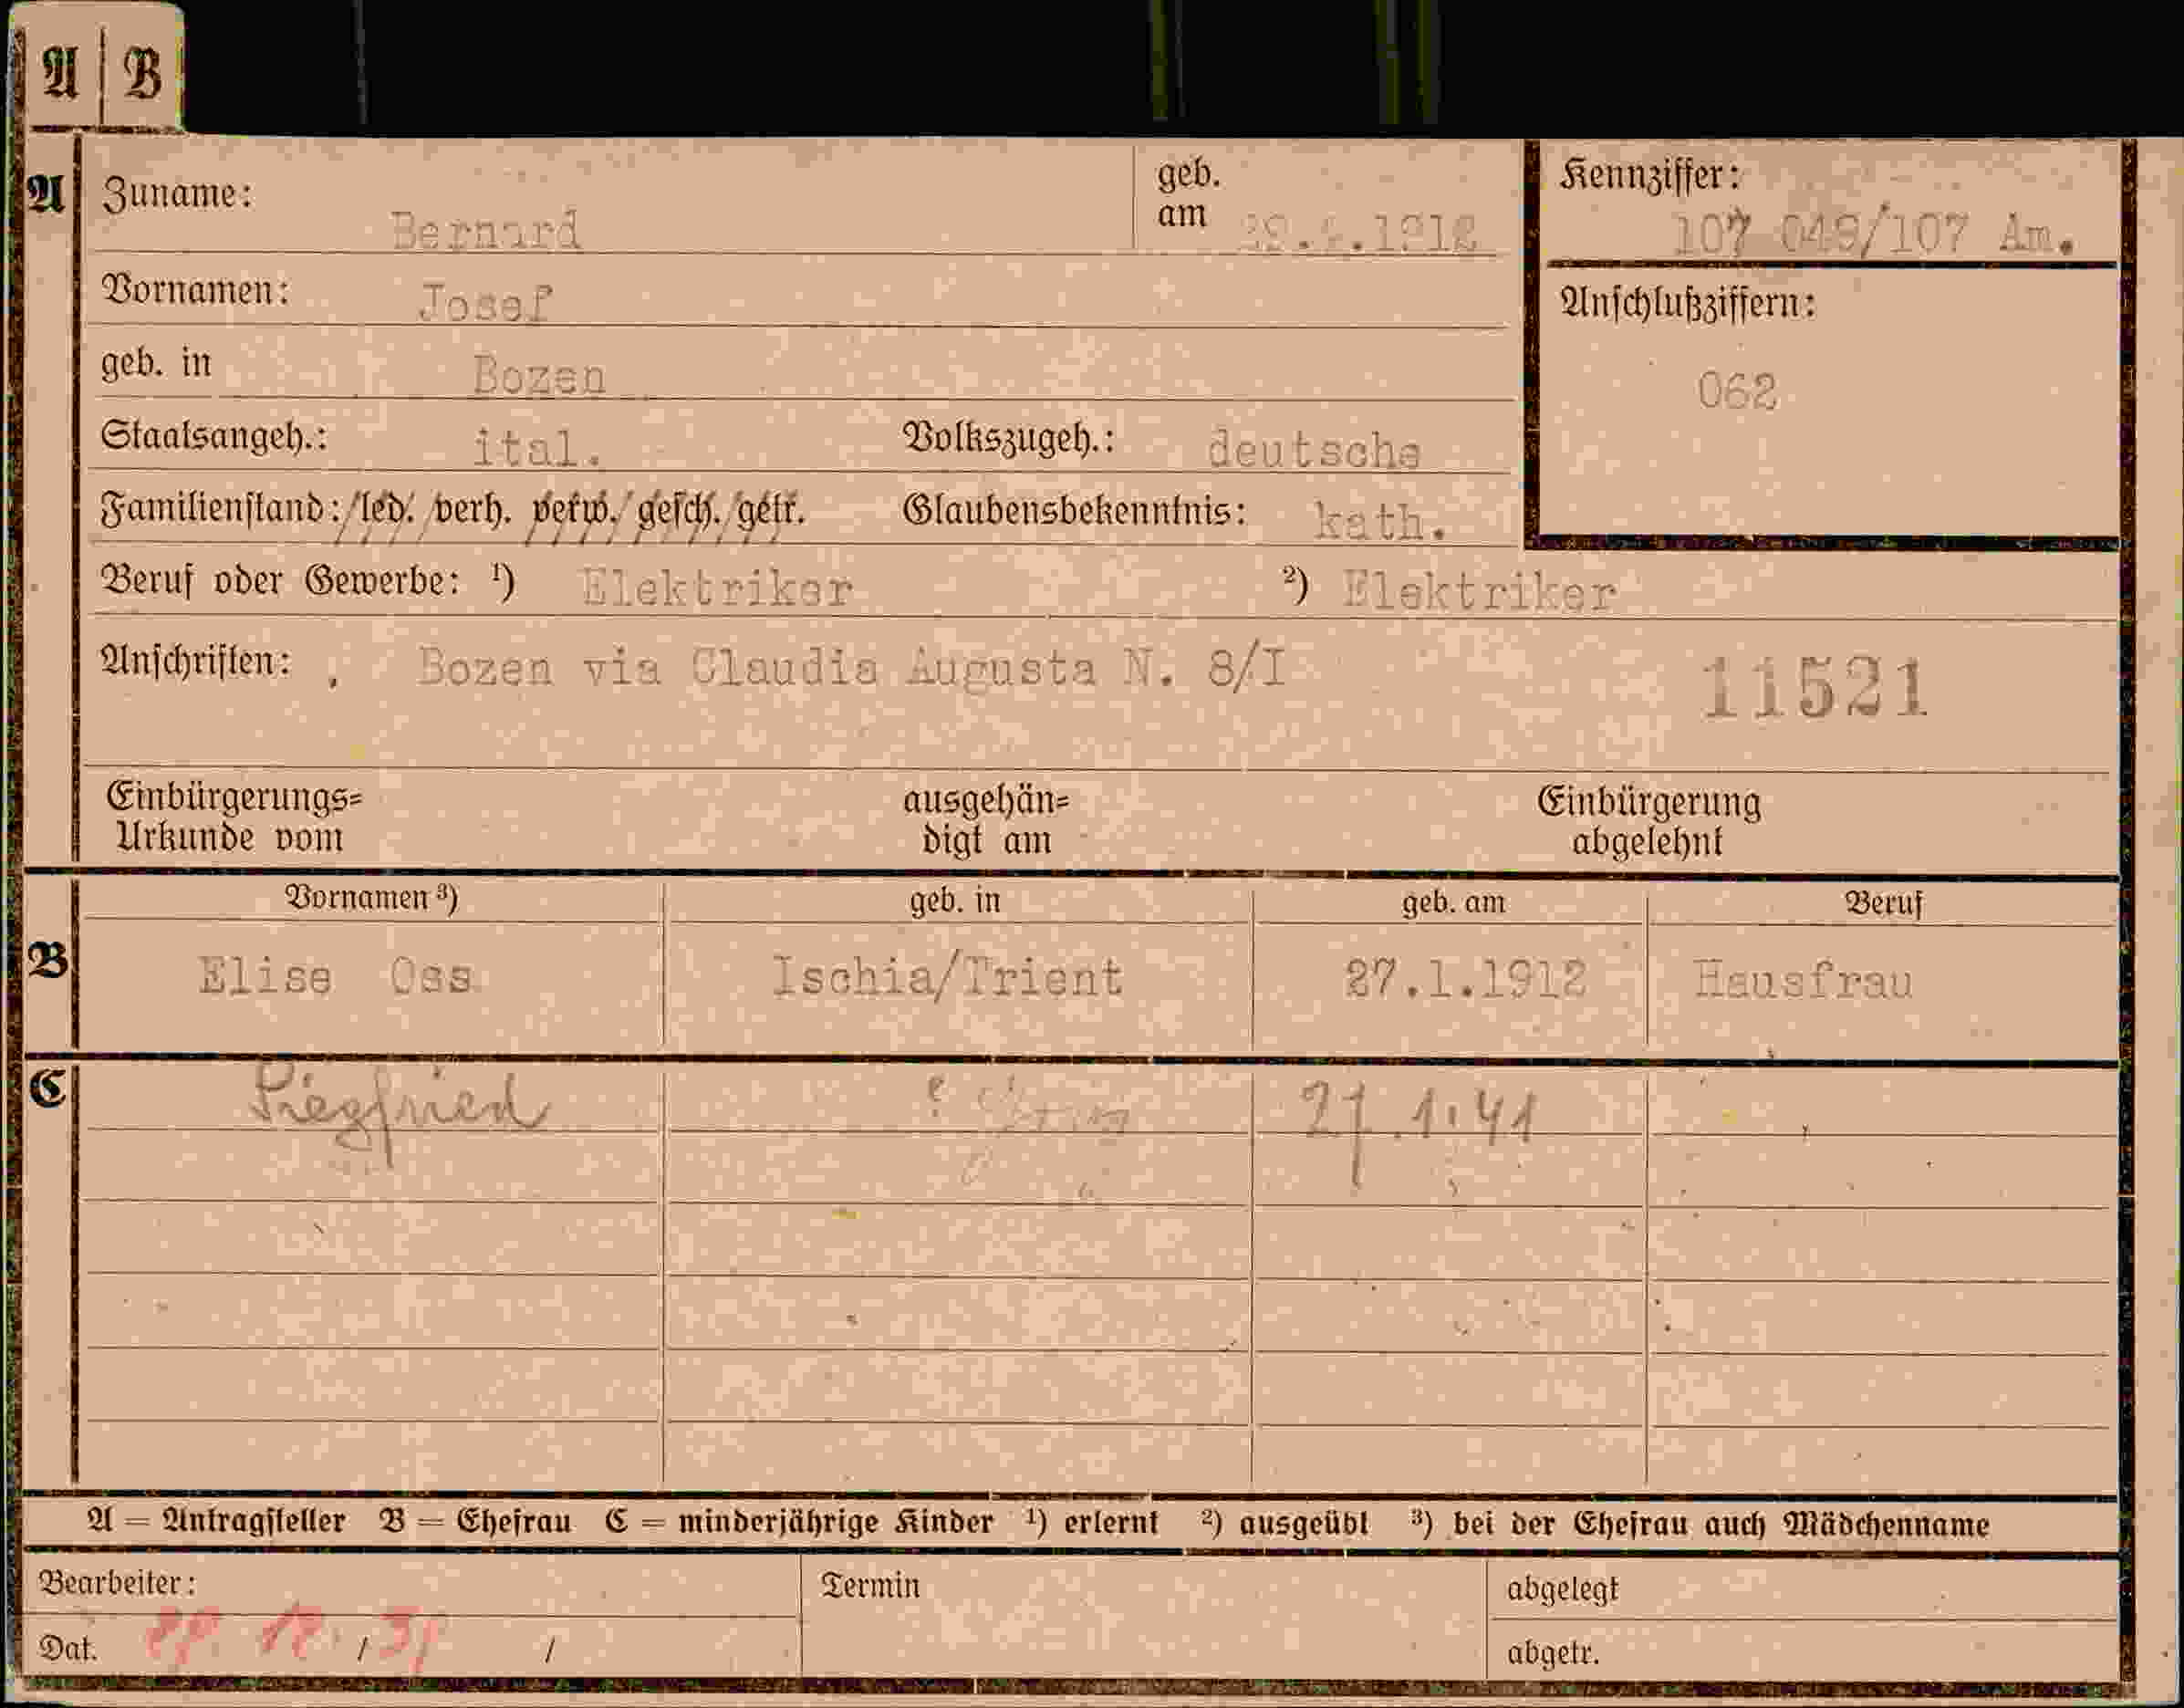 A | B
A
Zuname: Bernard
geb. am
Kennziffer:
107 049/107 Am.
Vornamen: Josef
Anschlußziffern:
062
geb. in Bozen
Staatsangeh.: ital. Volkszugeh.: deutsche
Familienstand: led. verh. verw. gesch. getr. Glaubensbekenntnis: kath.
Beruf oder Gewerbe: ¹) Elektriker ²) Elektriker
Anschriften: Bozen via Claudia Augusta N. 8/I 11521
Einbürgerungs= ausgehän= Einbürgerung
Urkunde vom digt am abgelehnt
Vornamen ³) geb. in geb. am Beruf
B Elise Oss Ischia/Trient 27.1.1912 Hausfrau
C Siegfried 27.1.41
A = Antragsteller B = Ehefrau C = minderjährige Kinder ¹) erlernt ²) ausgeübt ³) bei der Ehefrau auch Mädchenname
Bearbeiter: Termin abgelegt
Dat. / / abgetr.